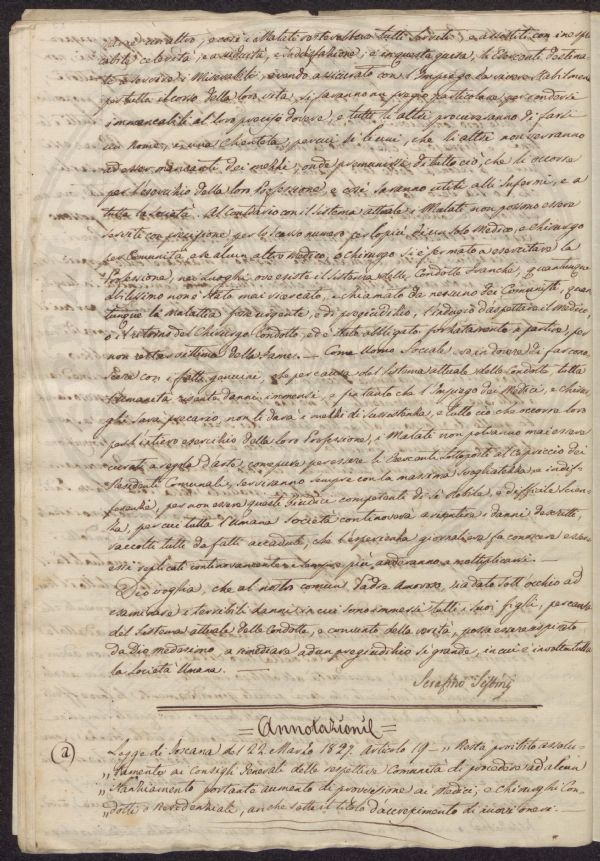 un altro, e così i Malati sortirebbero tutti serviti, e assistiti con inespli-
cabile celerità, e assiduità, e sodisfazione; e in questa guisa, li Esercenti destina-
ti a servire i Miserabili, avendo assicurato con l'Impiego la vivere stabilmente
per tutto il corso della loro vita, si faranno un pregio particolare, per rendersi
immancabili al loro preciso dovere, e tutti li altri procureranno di farsi
un Nome, e una Clientela, per cui se ne, che li altri non verranno
ad esser mancanti dei mezzi, onde premunirsi di tutto ciò, che li occorre
per l'esercizio della loro Professione, e così saranno utili alli Infermi, e a
tutta la Società. Al contrario con il sistema attuale i Malati non possono essere
serviti con precisione, per lo scarso numero per lo più di un solo Medico, e Chirurgo
per Comunità, e se alcun altro Medico, o Chirurgo si è fermato a esercitare la
Professione, nei luoghi ove esiste il sistema delle Condotte Franche, quantunque
abilissimo non è stato mai ricercato, e chiamato da nessuno dei Comunisti, quan-
tunque la Malattia fosse urgente, e di pregiudizio, l'indugio d'aspettare il Medico,
o il ritorno del Chirurgo Condotto, ed è stato obbligato forzatamente a partire, per
non restar vittima della fame. — Come Uomo Sociale sono in dovere di far cono-
scere con i fatti genuini, che per causa del sistema attuale delle Condotte tutta
l'umanità risente danni immensi, e fin tanto che l'Impiego dei Medici, e Chirur-
ghi sarà precario, non li darà i mezzi di sussistenza, e tutto ciò che occorre loro
per l'intiero esercizio della loro Professione, i Malati non potranno mai essere
curati a regola d'arte, come pure per essere li Esercenti sottoposti al capriccio dei
Residenti Comunali, serviranno sempre con la massima svogliatezza, e indif-
ferenza, per non essere questi Giudici competenti di sì Nobile, e difficile Scien-
za, per cui tutta l'Umana società continoverà a risentire i danni descritti,
raccolti tutti da fatti accaduti, che l'esperienza giornaliera fa conoscere esser-
essi replicati continovamente e sempre più anderanno a moltiplicarsi. —
Dio voglia, che al nostro comun Padre Amoroso, sia dato sott'occhio ad
esaminare i sensibili danni in cui sono immersi tutti i suoi figli, per causa
del Sistema attuale delle Condotte, e convinto della verità, possa essere inspirato
da Dio medesimo, a rimediare ad un pregiudizio sì grande, in cui è involta tutta
la Società Umana. —
Serafino
= Annotazioni =
(a) Legge di Toscana del 22 Marzo 1827. Articolo 19 — "Resta proibito assolu-
"tamente ai Consigli Generali delle respettive Comunità di procedere ad alcun
"stanziamento portante aumento di provvisione ai Medici, e Chirurghi Con-
"dotti, o Residenziali, anche sotto il titolo d'accrescimento di nuovi oneri.